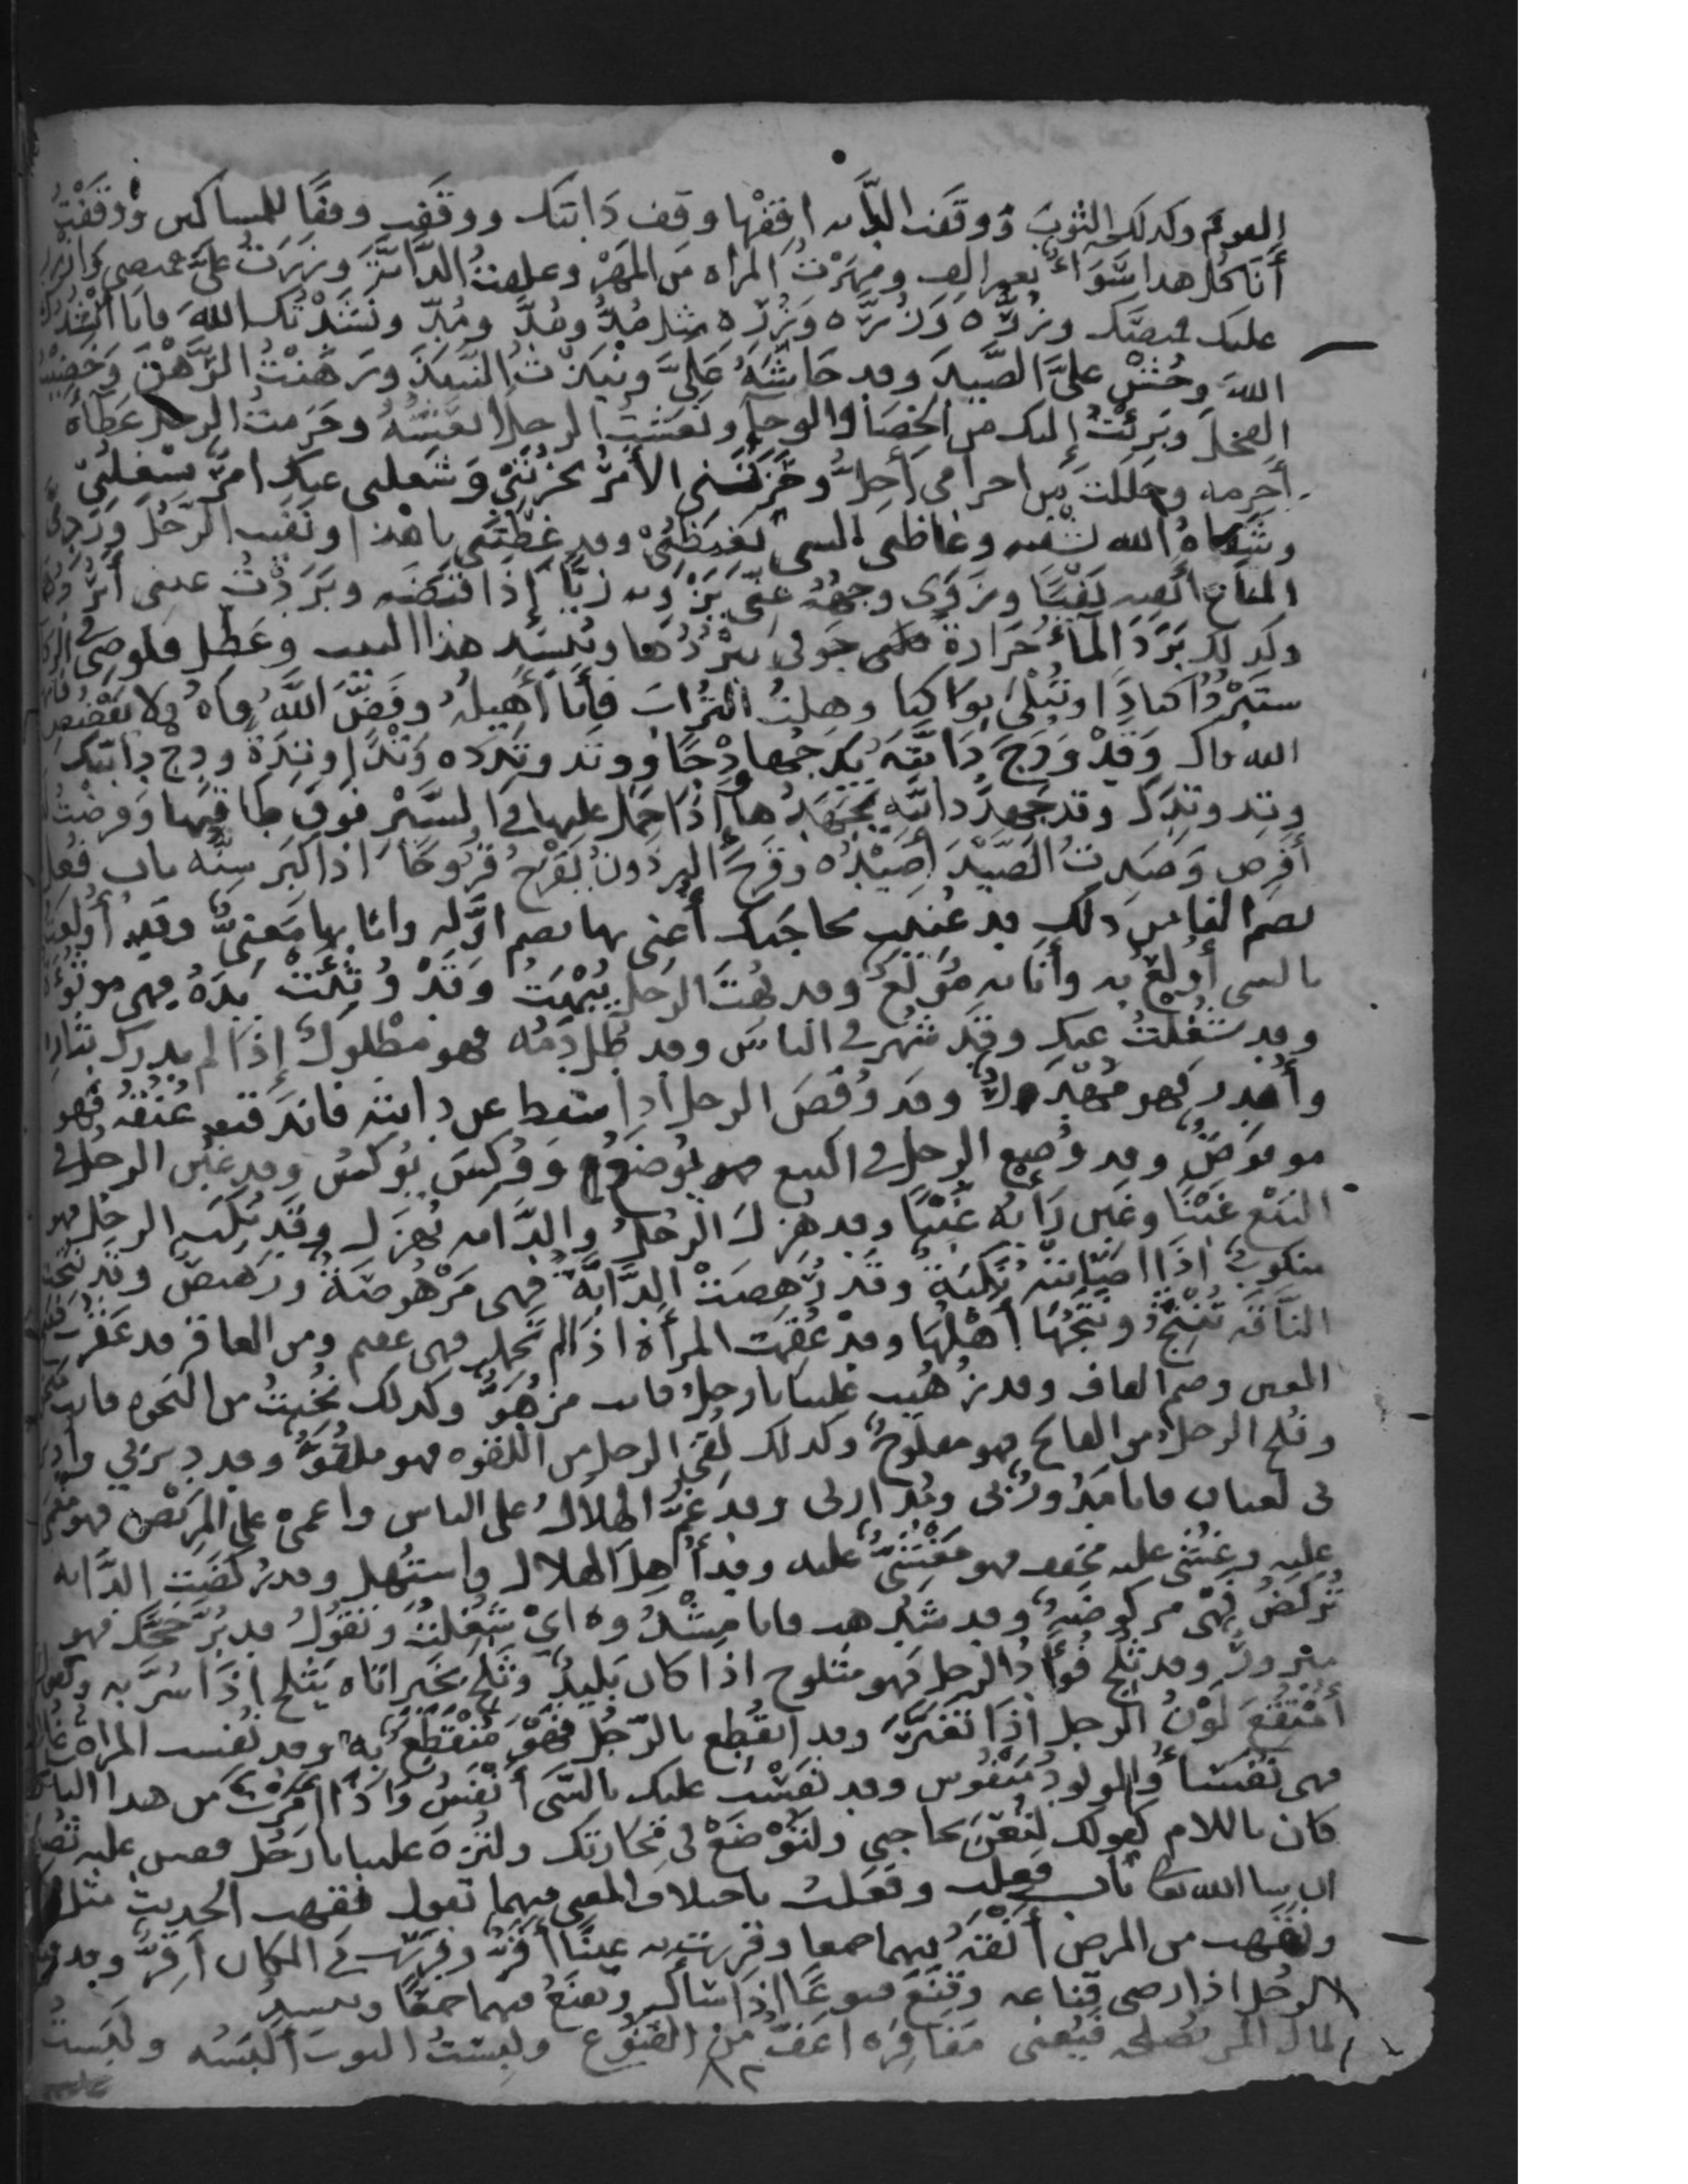 القوم وكذلك الثوب ووقفت الدابه اقفها وقف دابتك ووقفت وقفا للمساكين ووقفت
أنا كل هذا سواء بغير الف ومهرت المراه من المهر وعلفت الدابة وزررت علي قميصي وازرر
عليك قميصك وزره وزره وزره مثل مد ومد ومد ونشدتك الله فانا انشدك
الله وحش علي الصيد وقد حاشه علي ونبذت النبيذ ورهنت الرهن وخصيت
الفحل وبرئت إليك من الخصا والوجا ونعشت الرجل انعشه وحرمت الرجل عطاه
أحرمه وحللت من احرامي أحل وحزنني الأمر يحزنني وشغلني عنك امر يشغلني
وشفاه الله يشفيه وغاظني الشي يغيظني وقد غظتني يا هذا ونفيت الرجل وردي
المتاع أنفيه نفيا وزوى وجهه عني يزويه زيا إذا قبضه وبردت عيني أبردها
وكذلك برد الماء حرارة جوفي يبردها وينشد هذا البيت وعطل قلوصي في الركاب
ستبرد اكبادا وتبكي بواكيا وهلت التراب فأنا أهيله وفض الله فاه ولا يفضض
الله فاك وقد ودج دابته يدجها ودجا ووتد وتده وتدا وتدة ودج دابتك
وتد وتدك وقد جهد دابته يجهدها اذا حمل عليها في السير فوق طاقتها وفرضت له
أفرض وصدت الصيد أصيده وقرح البرذون يقرح قروحا اذا كبر سنه باب فعل
بضم الفا من ذلك قد عنيت بحاجتك أعنى بها بضم اوله وانا بها معني وقد أولعت
بالشي أولع به وأنا به مولع وقد بهت الرجل يبهت وقد وثئت يده فهي موثوءة
وقد شغلت عنك وقد شهر في الناس وقد طل دمه فهو مطلول إذا لم يدرك بثاره
وأهدر فهو مهدر وقد وقص الرجل اذا سقط عن دابته فاندقت عنقه فهو
موقوص وقد وضع الرجل في البيع فهو يوضع ووكس يوكس وقد غبن الرجل في
البيع غبنا وغبن رايه غبنا وقد هزل الرجل والدابه تهزل وقد نكب الرجل فهو
منكوب اذا اصابته نكبة وقد رهصت الدابة فهي مرهوصة ورهيص وقد نتجت
الناقه تنتج ونتجها أهلها وقد عقمت المرأة اذا لم تحمل فهي عقيم ومن العاقر قد عقرت بفتح
العين وضم القاف وقد زهيت علينا يا رجل فانت مزهو وكذلك نخيت من النخوه فانت منخو
وفلج الرجل من الفالج فهو مفلوج وكذلك لقي الرجل من اللقوه فهو ملقو وقد دير بي وأدير
بي لغتان فانا مدور بي ومدار بي وقد غم الهلال على الناس واغمي علي المريض فهو مغمى
عليه وغشي عليه مخفف فهو مغشي عليه وقد أهل الهلال واستهل وقد ركضت الدابه
تركض فهي مركوضه وقد شدهت فانا مشدوه اي شغلت وتقول قد بر حجك فهو
مبرور وقد ثلج فؤاد الرجل فهو مثلوج اذا كان بليدا وثلج بخبر اتاه يثلج إذا سر به وتقول
امتقع لون الرجل اذا تغير وقد انقطع بالرجل فهو منقطع به وقد نفست المراه غلاما
فهي نفسا والمولود منفوس وقد نفست عليك بالشي أنفس واذا أمرت من هذا الباب
كان باللام كقولك لتعن بحاجتي ولتوضع في تجارتك ولتزه علينا يا رجل فقس عليه تصب
ان شا الله تعا باب فعلت وفعلت باختلاف المعنى فيهما تقول فقهت الحديث مثل
ونقهت من المرض أنقه فيهما جميعا وقررت به عينا أقر وقررت في المكان أقر وقد قنع
الرجل اذا رضي قناعه وقنع قنوعا إذا سأل ويقنع فيهما جميعا وينشد
لمال المر يصلحه فيغني مفاقره اعف من القنوع ولبست الثوب ألبسه ولبست
٨٢